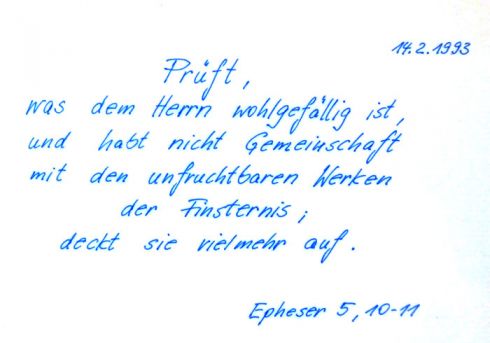 14.2.1993
Prüft,
was dem Herrn wohlgefällig ist,
und habt nicht Gemeinschaft
mit den unfruchtbaren Werken
der Finsternis;
deckt sie vielmehr auf.
Epheser 5, 10-11